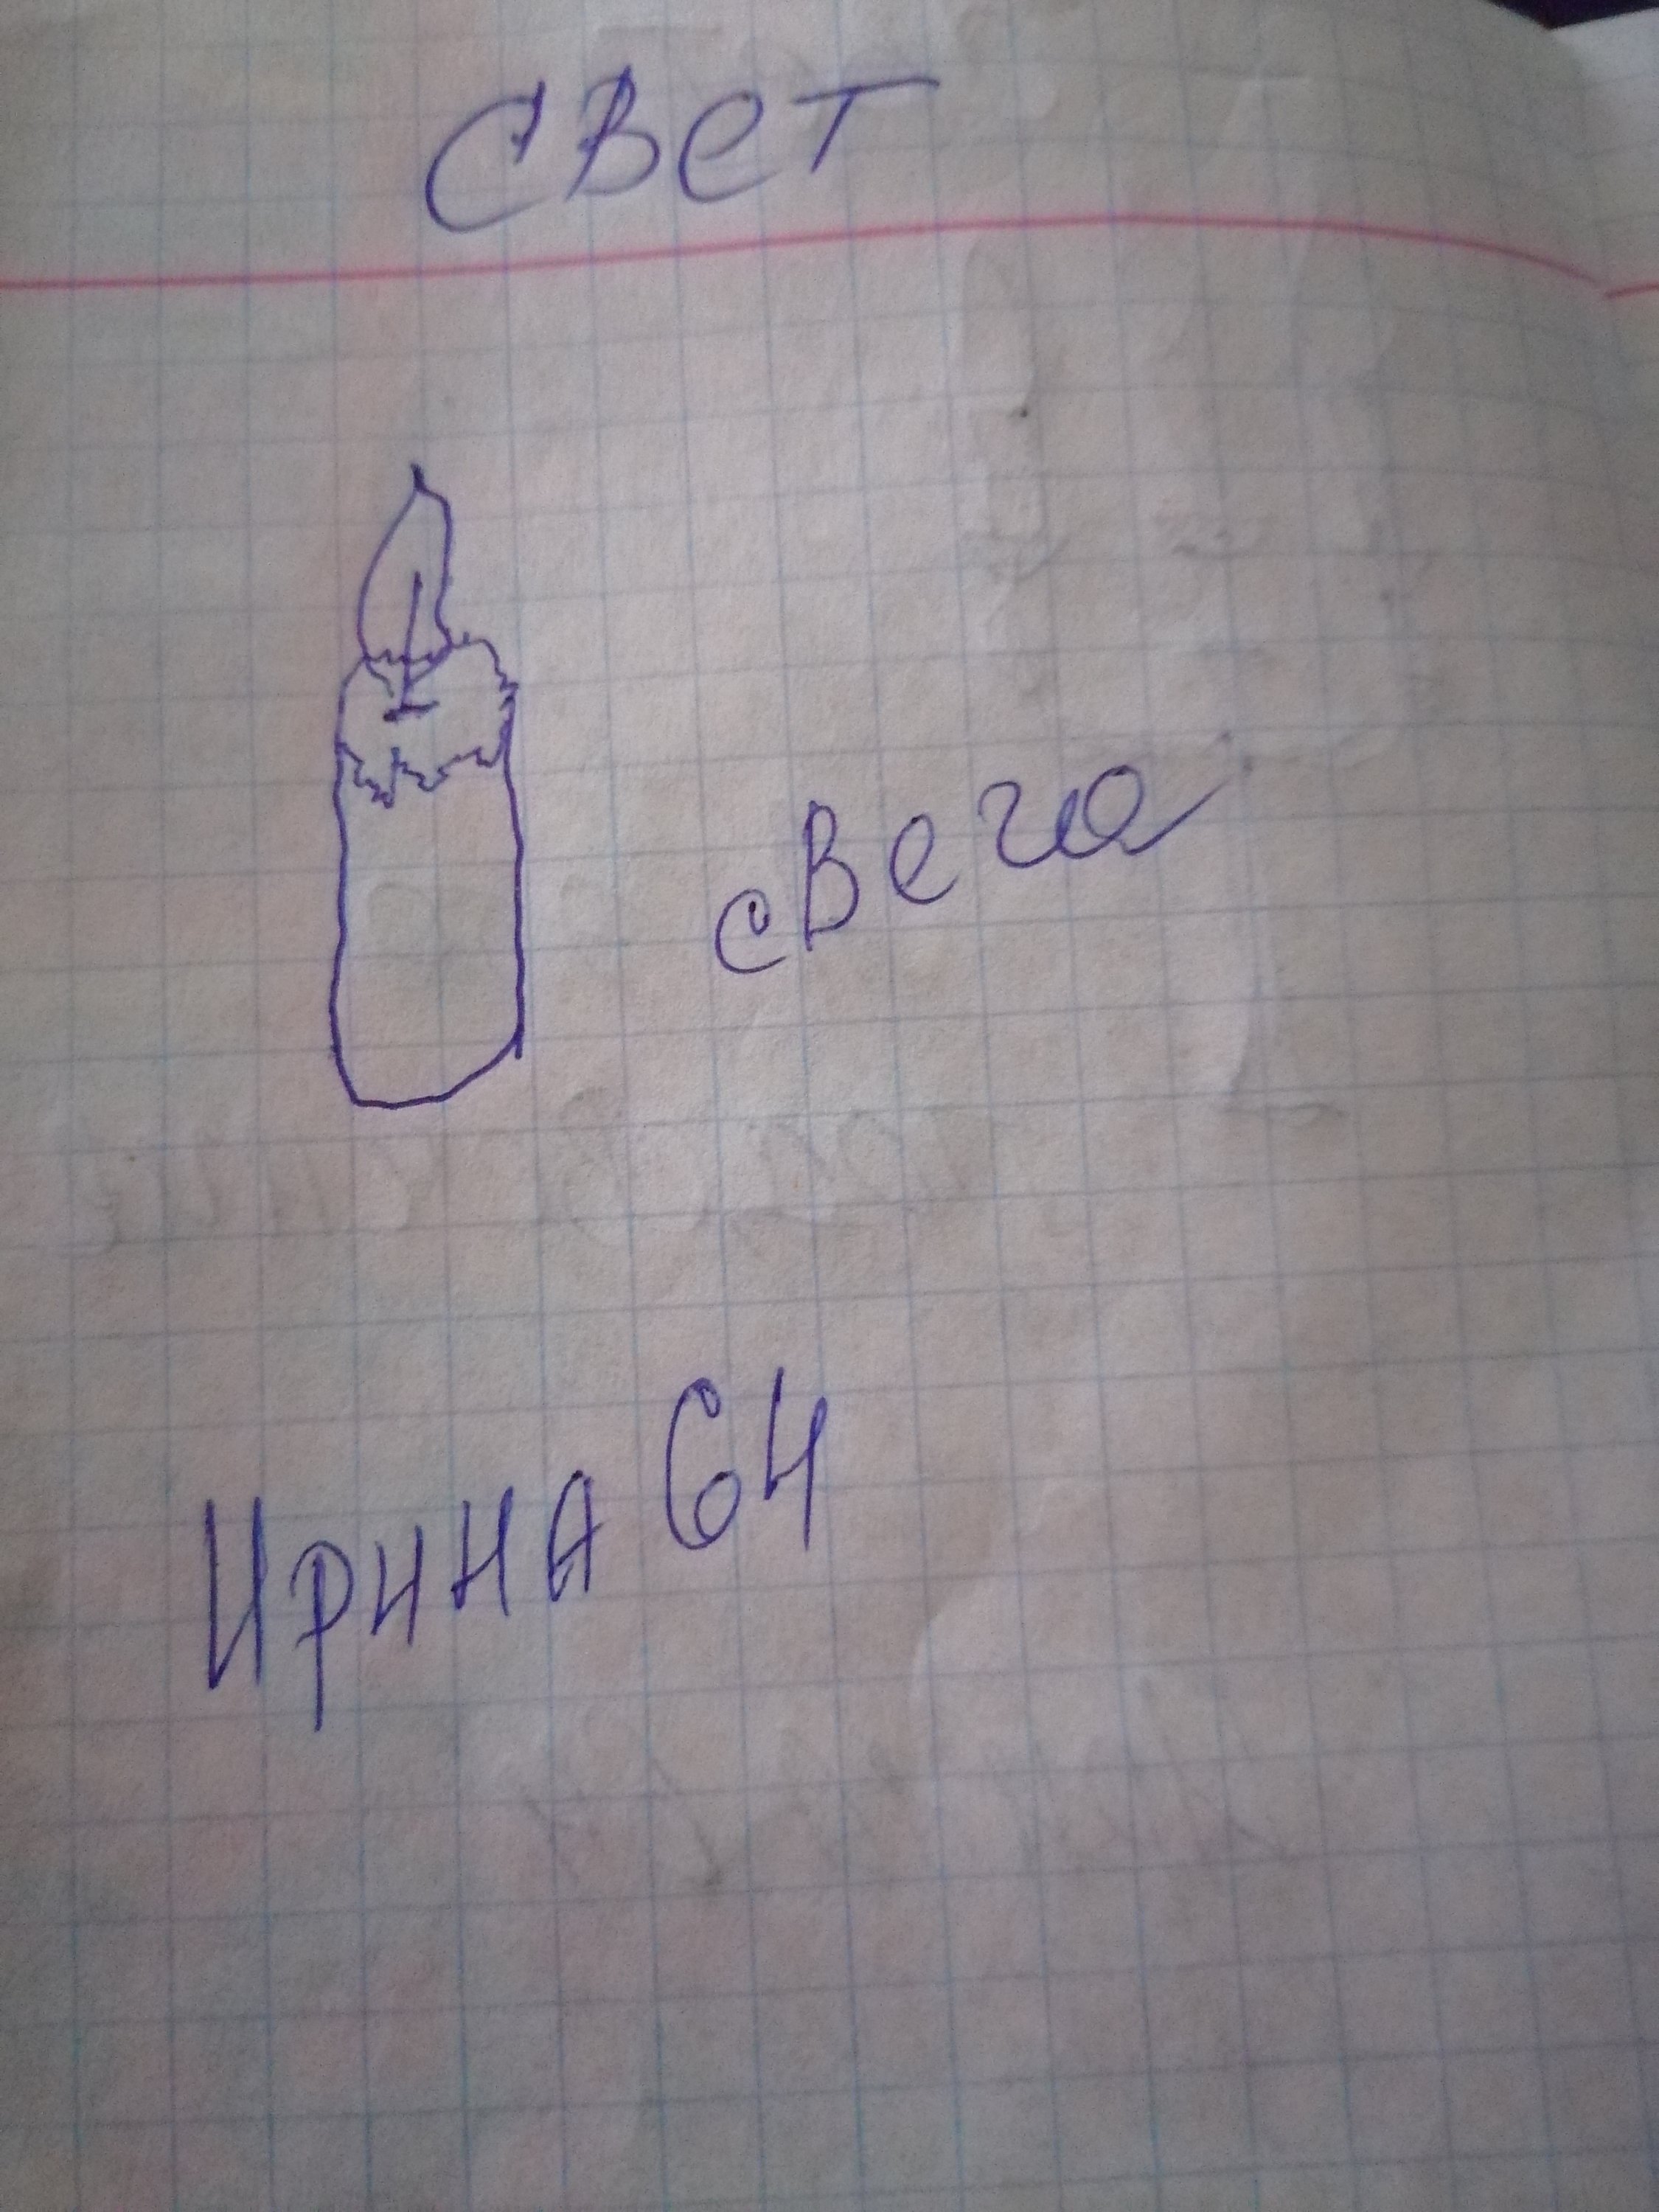 свет
свеча
ИРИНА 64